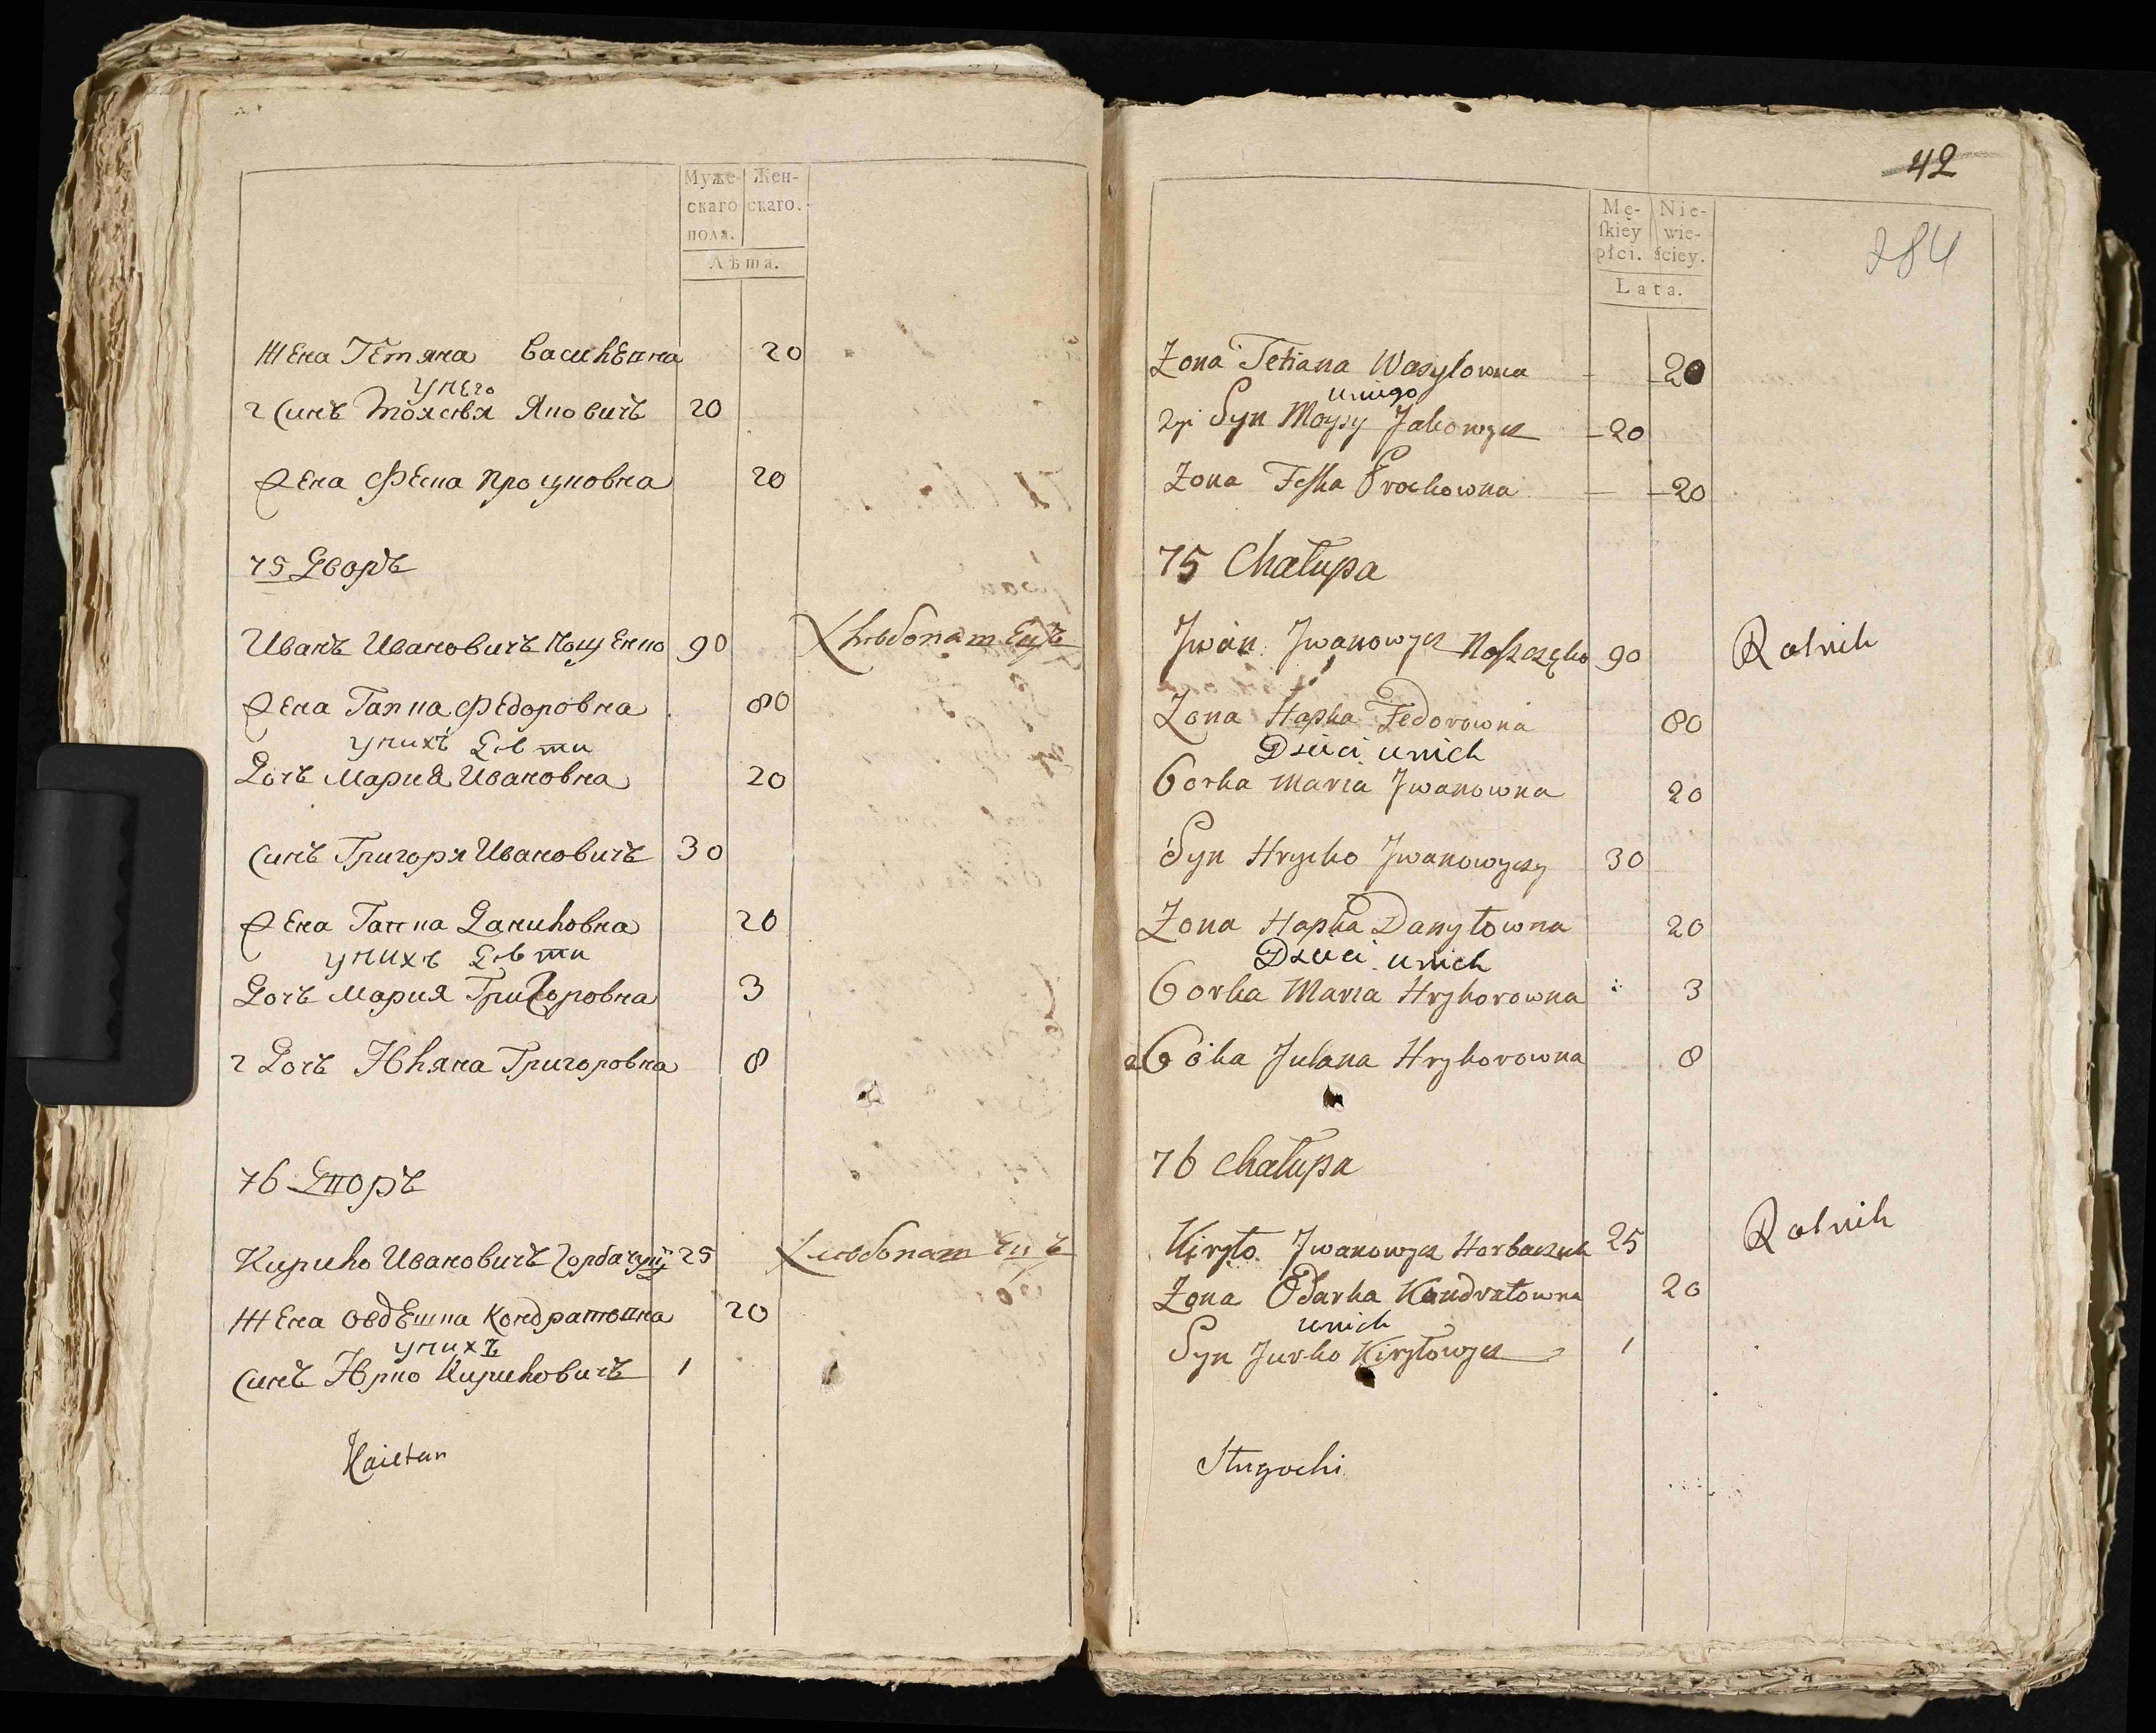 Муже- Жен-
скаго скаго.
пола.
Лѣта.
Жена Тетяна Василевна 20
У него
2 Синъ Мойсѣя Яковичъ 20
Жена Феска Процковна 20
75 Дворъ
Иванъ Ивановичъ 90 Хлѣбопашецъ
Жена Гапка Федоровна 80
У нихъ Дѣти
Дочъ Мария Ивановна 20
Синъ Григоря Ивановичъ 30
Жена Гапка Даниловна 20
У нихъ Дѣти
Дочъ Мария Григоровна 3
2 Дочъ Юляна Григоровна 8
76 Дворъ
Кирило Ивановичъ Горбачукъ 25 Хлѣбопашецъ
Жена Овдешка Кондратовна 20
У нихъ
Синъ Юрко Кириловичъ 1
Kaietan
42
284
Mę- Nie-
ſkiey wie-
płci. ściey.
Lata.
Zona Tetiana Wasylowna - - 20
u niego
2gi Syn Moysy Jakowycz - 20
Zona Feſka Prockowna - - 20
75 Chałupa
Jwan Jwanowycz 90 Rolnik
Zona Hapka Fedorowna 80
Dzieci u nich
Corka Maria Jwanowna 20
Syn Hrycko Jwanowyczy 30
Zona Hapka Danyłowna 20
Dzieci u nich
Corka Maria Hryhorowna 3
2 Córka Julana Hryhorowna 8
76 Chałupa
Kiryło Jwanowycz Horbaczuk 25 Rolnik
Zona Odarka Kondratowna 20
u nich
Syn Jurko Kiryłowycz 1